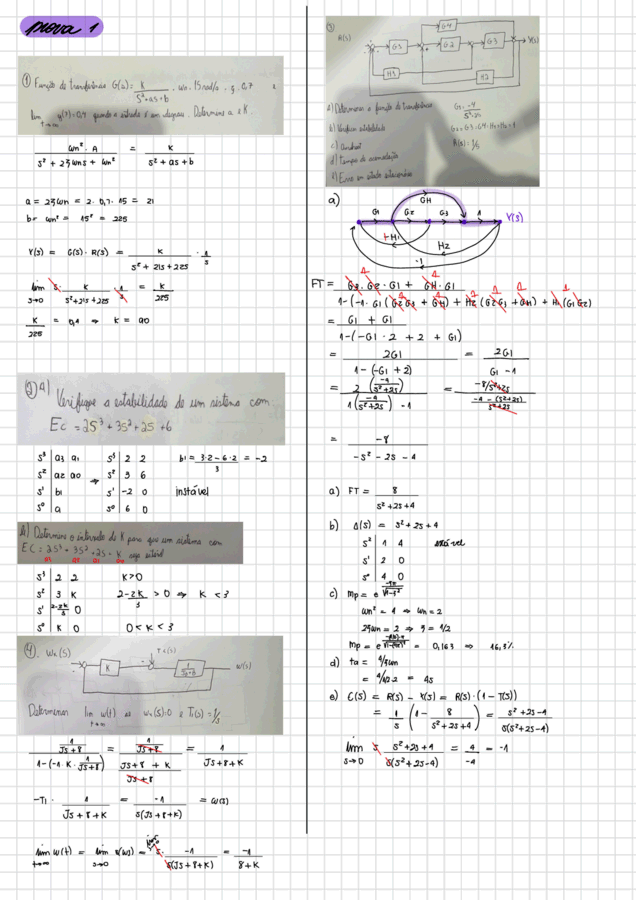 prova 1
① Função de transferência G(s) = K / S²+as+b , wn. 15rad/s , ξ. 0,7 e
lim t→∞ y(t) = 0,4 quando a entrada é um degrau. Determine a e K.
wn² . A / s² + 2ξwns + wn² = K / s² + as + b
a = 2ξwn = 2. 0,7. 15 = 21
b = wn² = 15² = 225
Y(s) = G(s) . R(s) = K / s² + 21s + 225 . 1/s
lim s→0 s . K / s²+21s+225 . 1/s = K / 225
K / 225 = 0,4 ⇒ K = 90
② A) Verifique a estabilidade de um sistema com
EC = 2S³ + 3S² + 2S + 6
s³ | a3 a1 s³ | 2 2 b1 = 3.2 - 6.2 / 3 = -2
s² | a2 a0 ⇒ s² | 3 6
s¹ | b1 s¹ | -2 0 instável
s⁰ | a s⁰ | 6 0
b) Determine o intervalo de K para que um sistema com
EC = 2S³ + 3S² + 2S + K seja estável
s³ | 2 2 K>0
s² | 3 K 2-2K / 3 > 0 ⇒ K < 3
s¹ | 2-2K / 3 0
s⁰ | K 0 0 < K < 3
4. Wn(S)
T1(S)
K
1 / JS+8
W(S)
Determinar lim t→∞ w(t) se Wn(S)=0 e T1(S) = 1/S
1 / JS+8 / 1-(-1.K. 1 / JS+8) = 1 / JS+8 / JS+8 + K / JS+8 = 1 / JS+8+K
-T1 . 1 / JS+8+K = -1 / S(JS+8+K) = W(S)
lim t→∞ w(t) = lim s→0 s(ws) = lim s→0 s . -1 / s(JS+8+K) = -1 / 8+K
③ R(S)
G4
G3
G2
G3
Y(S)
H1
H2
a) Determinar a função de transferência G1 = -4 / S²+2S
b) Verificar estabilidade G2 = G3 = G4 = H1 = H2 = 1
R(S) = 1/S
d) tempo de acomodação
e) Erro em estado estacionário
a)
GH
G1 G2 G3 1 Y(S)
+H1
H2
-1
FT = G3.G2.G1 + GH.G1 / 1-(-1.G1(G2G3+GH) + H2(G2G3+GH) + H1(G1G2)
= G1 + G1 / 1-(-G1.2 + 2 + G1)
= 2G1 / 1-(-G1+2) = 2G1 / G1-1
= 2(-4 / s²+2s) / 1(-4 / s²+2s) - 1 = -8/s²+2s / -4-(s²+2s) / s²+2s
= -8 / -s²-2s-4
a) FT = 8 / s²+2s+4
b) Δ(s) = s²+2s+4
s² | 1 4 estável
s¹ | 2 0
s⁰ | 4 0
c) Mp = e
wn² = 4 ⇒ wn = 2
2ξwn = 2 ⇒ ξ = 1/2
Mp = e = 0,163 ⇒ 16,3%
d) ta = 4/ξwn
= 4/1/2.2 = 4s
e) E(s) = R(s) - Y(s) = R(s).(1-T(s))
= 1/s (1 - 8 / s²+2s+4) = s²+2s-4 / s(s²+2s-4)
lim s→0 s s²+2s+4 / s(s²+2s-4) = 4 / -4 = -1